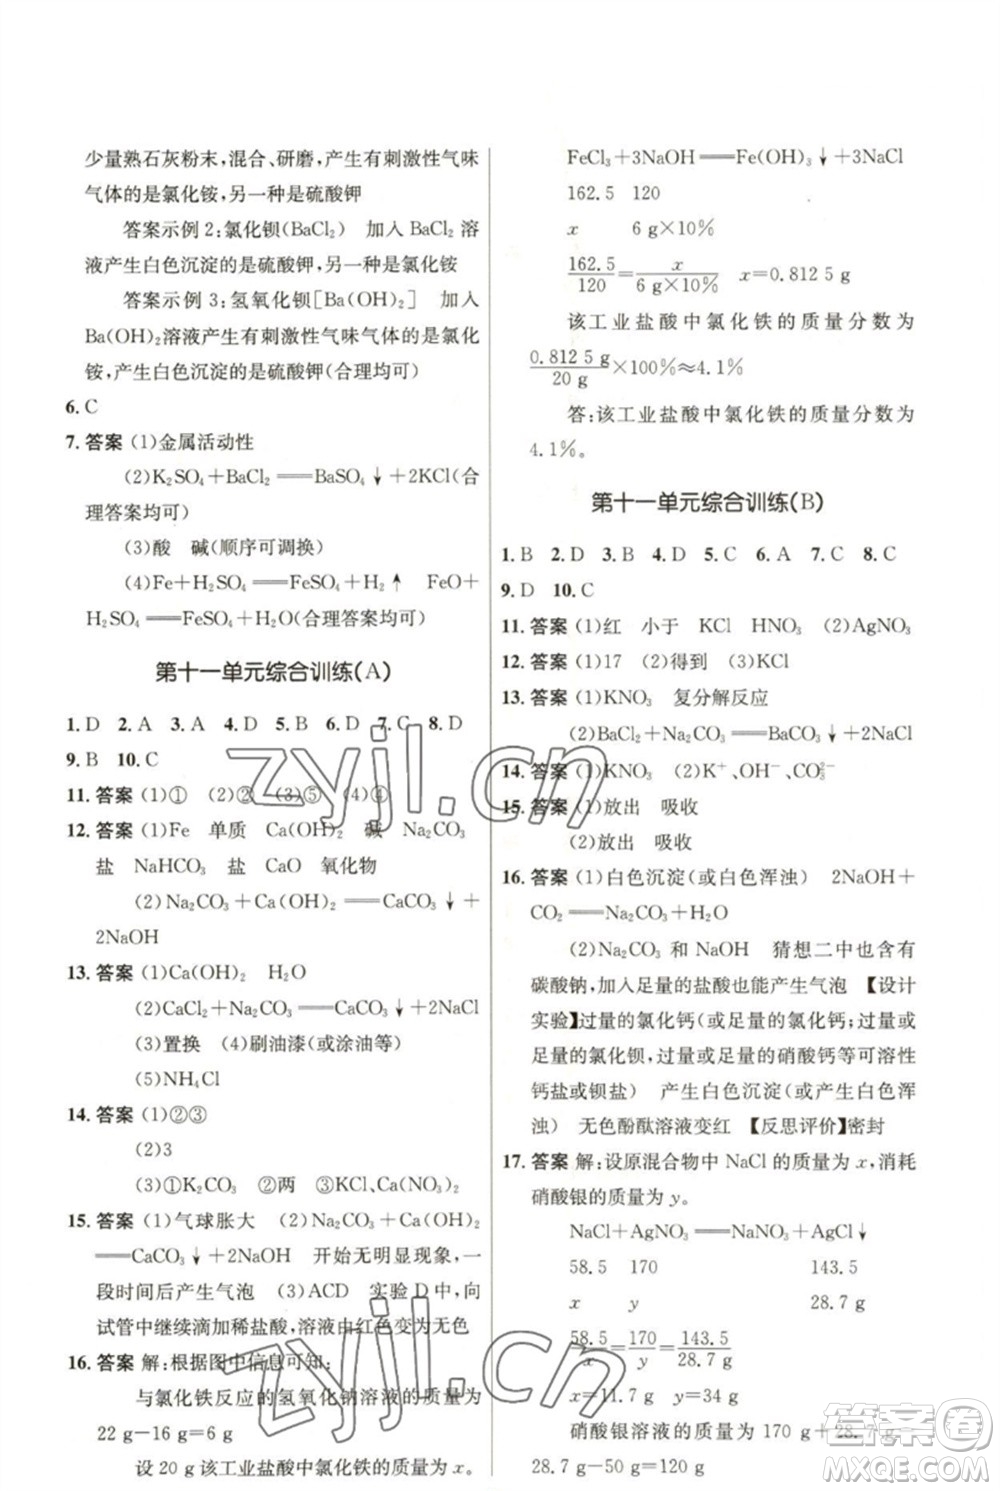 少量熟石灰粉末,混合、研磨,产生有刺激性气味
气体的是氯化铵,另一种是硫酸钾
答案示例 2:氯化钡(BaCl₂) 加入 BaCl₂ 溶
液产生白色沉淀的是硫酸钾,另一种是氯化铵
答案示例 3:氢氧化钡[Ba(OH)₂] 加入
Ba(OH)₂溶液产生有刺激性气味气体的是氯化
铵,产生白色沉淀的是硫酸钾(合理均可)
6. C
7. 答案 (1)金属活动性
(2)K₂SO₄+BaCl₂══BaSO₄↓+2KCl(合
理答案均可)
(3)酸 碱(顺序可调换)
(4)Fe+H₂SO₄══FeSO₄+H₂↑ FeO+
H₂SO₄══FeSO₄+H₂O(合理答案均可)
第十一单元综合训练(A)
1. D 2. A 3. A 4. D 5. B 6. B 7. C 8. D
9. B 10. C
11. 答案 (1)① (2)② (3)⑤ (4)④
12. 答案 (1)Fe 单质 Ca(OH)₂ 碱 Na₂CO₃
盐 NaHCO₃ 盐 CaO 氧化物
(2)Na₂CO₃+Ca(OH)₂══CaCO₃↓+
2NaOH
13. 答案 (1)Ca(OH)₂ H₂O
(2)CaCl₂+Na₂CO₃══CaCO₃↓+2NaCl
(3)置换 (4)刷油漆(或涂油等)
(5)NH₄Cl
14. 答案 (1)②③
(2)3
(3)①K₂CO₃ ②两 ③KCl、Ca(NO₃)₂
15. 答案 (1)气球胀大 (2)Na₂CO₃+Ca(OH)₂
══CaCO₃↓+2NaOH 开始无明显现象,一
段时间后产生气泡 (3)ACD 实验 D 中,向
试管中继续滴加稀盐酸,溶液由红色变为无色
16. 答案 解:根据图中信息可知:
与氯化铁反应的氢氧化钠溶液的质量为
22 g-16 g=6 g
设 20 g 该工业盐酸中氯化铁的质量为 x。
FeCl₃+3NaOH══Fe(OH)₃↓+3NaCl
162.5 120
x 6 g×10%
162.5/120=x/(6 g×10%) x=0.812 5 g
该工业盐酸中氯化铁的质量分数为
0.812 5 g/20 g×100%≈4.1%
答:该工业盐酸中氯化铁的质量分数为
4.1%。
第十一单元综合训练(B)
1. B 2. D 3. B 4. D 5. C 6. A 7. C 8. C
9. D 10. C
11. 答案 (1)红 小于 KCl HNO₃ (2)AgNO₃
12. 答案 (1)17 (2)得到 (3)KCl
13. 答案 (1)KNO₃ 复分解反应
(2)BaCl₂+Na₂CO₃══BaCO₃↓+2NaCl
14. 答案 (1)KNO₃ (2)K⁺、OH⁻、CO₃²⁻
15. 答案 (1)放出 吸收
(2)放出 吸收
16. 答案 (1)白色沉淀(或白色浑浊) 2NaOH+
CO₂══Na₂CO₃+H₂O
(2)Na₂CO₃ 和 NaOH 猜想二中也含有
碳酸钠,加入足量的盐酸也能产生气泡 【设计
实验】过量的氯化钙(或足量的氯化钙;过量或
足量的氯化钡,过量或足量的硝酸钙等可溶性
钙盐或钡盐) 产生白色沉淀(或产生白色浑
浊) 无色酚酞溶液变红 【反思评价】密封
17. 答案 解:设原混合物中 NaCl 的质量为 x,消耗
硝酸银的质量为 y。
NaCl+AgNO₃══NaNO₃+AgCl↓
58.5 170 143.5
x y 28.7 g
58.5/x=170/y=143.5/28.7 g
x=11.7 g y=34 g
硝酸银溶液的质量为 170 g+28.7 g+
28.7 g-50 g=120 g
zyjl.cn
zyjl.cn
答案圈
MXQE.COM